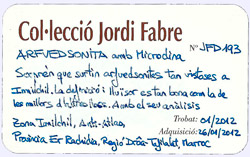 Col·lecció Jordi Fabre
Nº JFD193
ARFVEDSONITA amb Microclina
Sorprèn que surtin arfvedsonites tan vistoses a
Imilchil. La definició i lluïssor estan bona com la de
les millors d'altres llocs. Amb el seu anàlisis
Trobat: 01/2012
Zona Imilchil, Anti-Atlas,
Adquisició: 26/01/2012
Província Er Rachidia, Regió Drâa-Tafilalet, Marroc